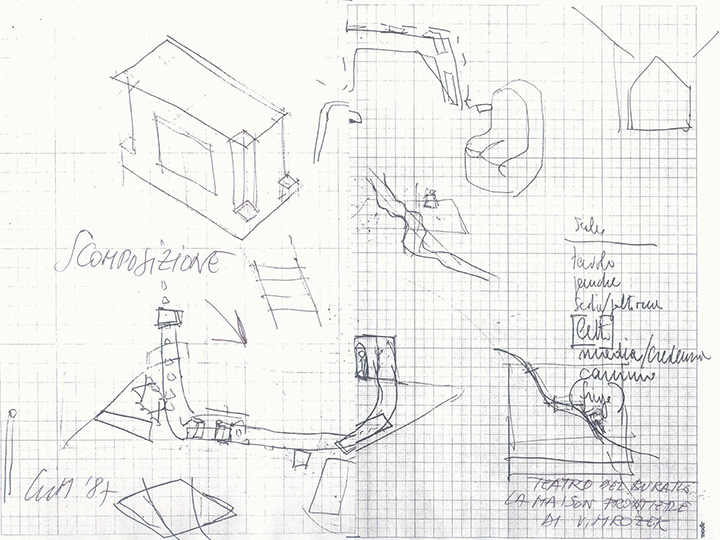 SCOMPOSIZIONE
Scale
tavolo
panche
sedia/poltrona
Letto
madia/credenza
camino
GUM '87
TEATRO DEL BURATTO
LA MAISON FRONTIERE
DI V. MROZEK